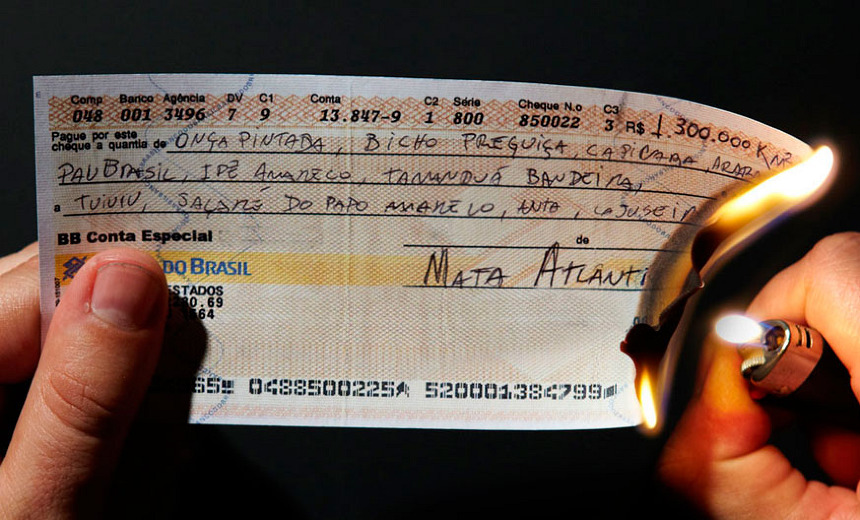 Comp Banco Agência DV C1 Conta C2 Série Cheque N.o C3
048 001 3496 7 9 13.847-9 1 800 850022 3 R$ 1.300.000 KM²
Pague por este
cheque a quantia de ONÇA PINTADA, BICHO PREGUIÇA, CAPIVARA, ARAR
PAU BRASIL, IPÊ AMARELO, TAMANDUÁ BANDEIRA,
a TUIUIU, JACARÉ DO PAPO AMARELO, ANTA, CAJUEIR
de
BB Conta Especial
DO BRASIL MATA ATLÂNTI
ESTADOS
80.69
564
65 0488500225 520001384799